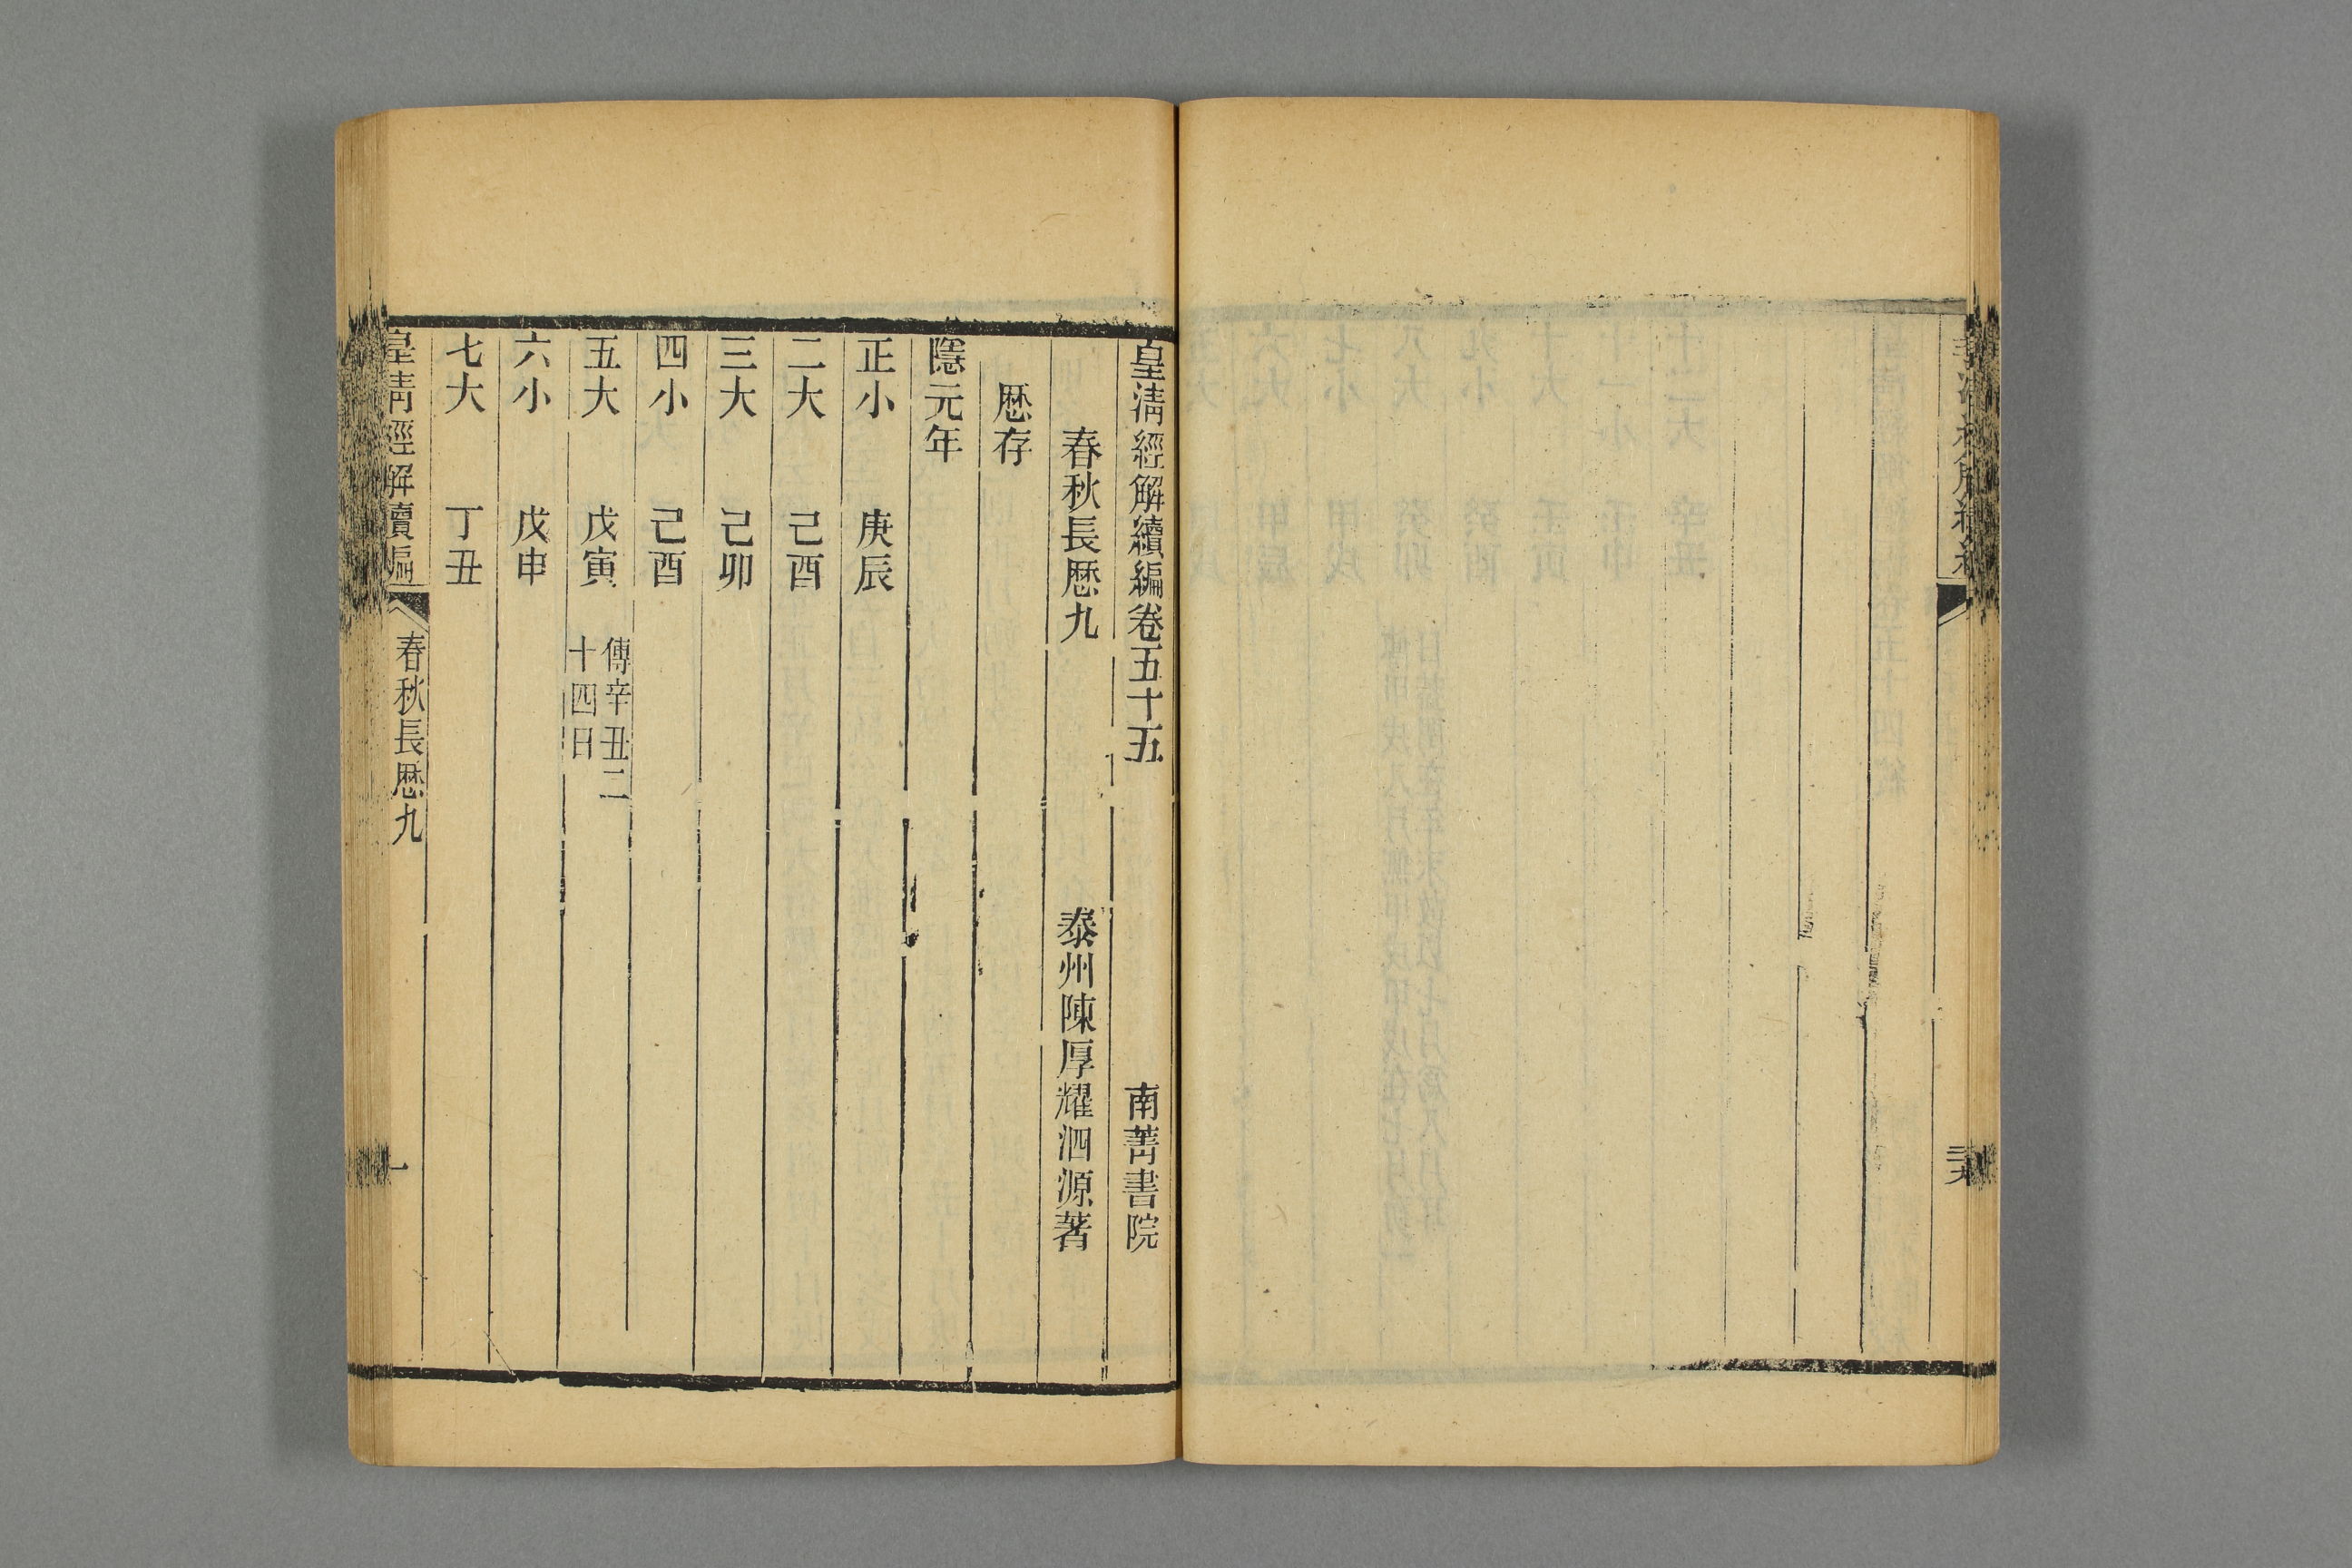 皇淸經解續編卷五十五 南菁書院
春秋長厯九 泰州陳厚耀泗源著
厯存
隱元年
正小 庚辰
二大 己酉
三大 己卯
四小 己酉
五大 戊寅 傳辛丑二
十四日
六小 戊申
七大 丁丑
皇淸經解續編 春秋長厯九 一